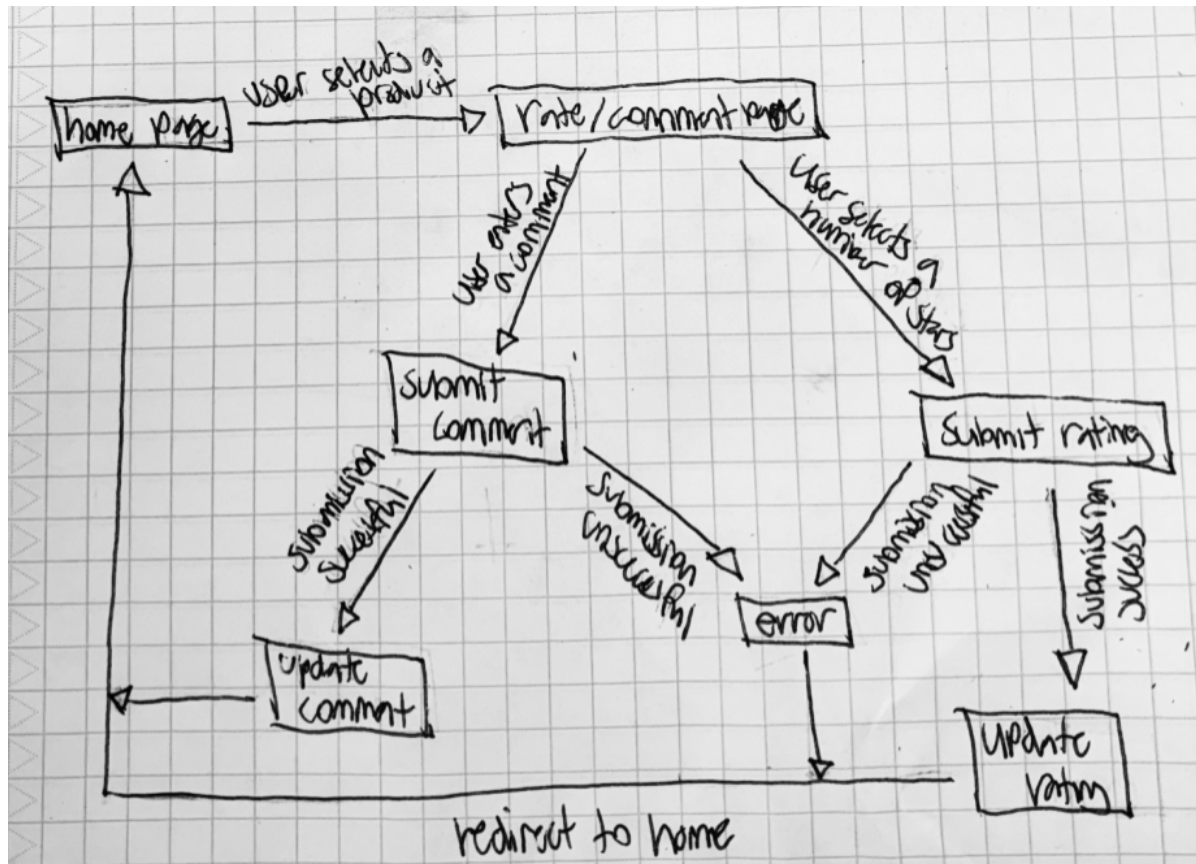 user selects a
product
home page
rate/comment page
user enters
a comment
user selects a
number of stars
submit
comment
submit rating
submission
successful
submission
submission
submission
success
error
update
comment
update
rating
redirect to home